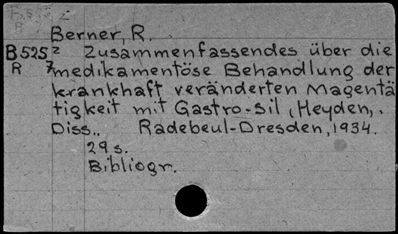 Berner, R.
B525z Zusammenfassendes über die
R 7 medikamentöse Behandlung der
krankhaft veränderten Magentä
tigkeit mit Gastro-Sil (Heyden).
Diss.. Radebeul-Dresden, 1934.
29 s.
Bibliogr.